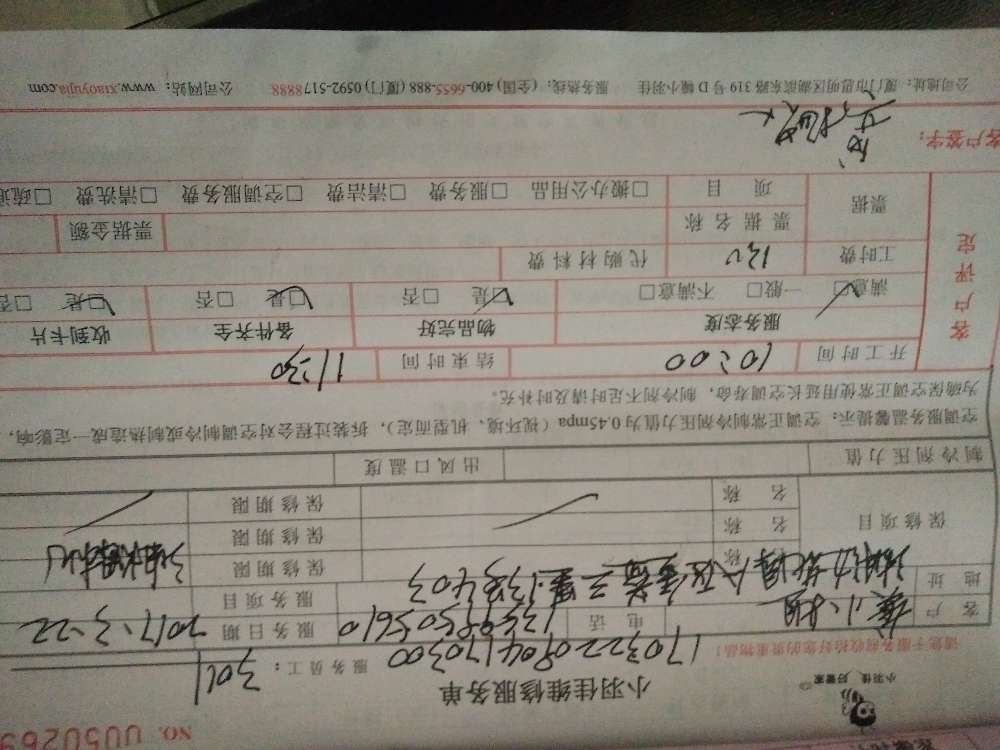 NO. 0050269
小羽佳 好管家
小羽佳维修服务单
请您于服务前收拾好您的贵重物品!
1703220904170300
服务员工: 3041
客户
电话 13695005610
服务日期 2017.3.22
地址
服务项目
保修项目
名称
保修期限
名称
保修期限
名称
保修期限
制冷剂压力值
出风口温度
空调服务温馨提示: 空调正常制冷剂压力值为0.45mpa(视环境、机型而定),拆装过程会对空调制冷或制热造成一定影响,
为确保空调正常使用延长空调寿命,制冷剂不足时请及时补充。
客户评定
开工时间 10:00
结束时间 11:30
服务态度 物品完好 备件齐全 收到卡片
满意□ 一般□ 不满意□ □是 □否 □是 □否 □是 □否
工时费 120 代购材料费
票据
票据名称 票据金额
项目 □搬办公用品 □服务费 □清洁费 □空调服务费 □清洗费 □疏通
客户签字:
公司地址: 厦门市思明区湖滨东路 319 号 D 幢小羽佳 服务热线: (全国) 400-6655-888 (厦门) 0592-5178888 公司网站: www.xiaoyujia.com